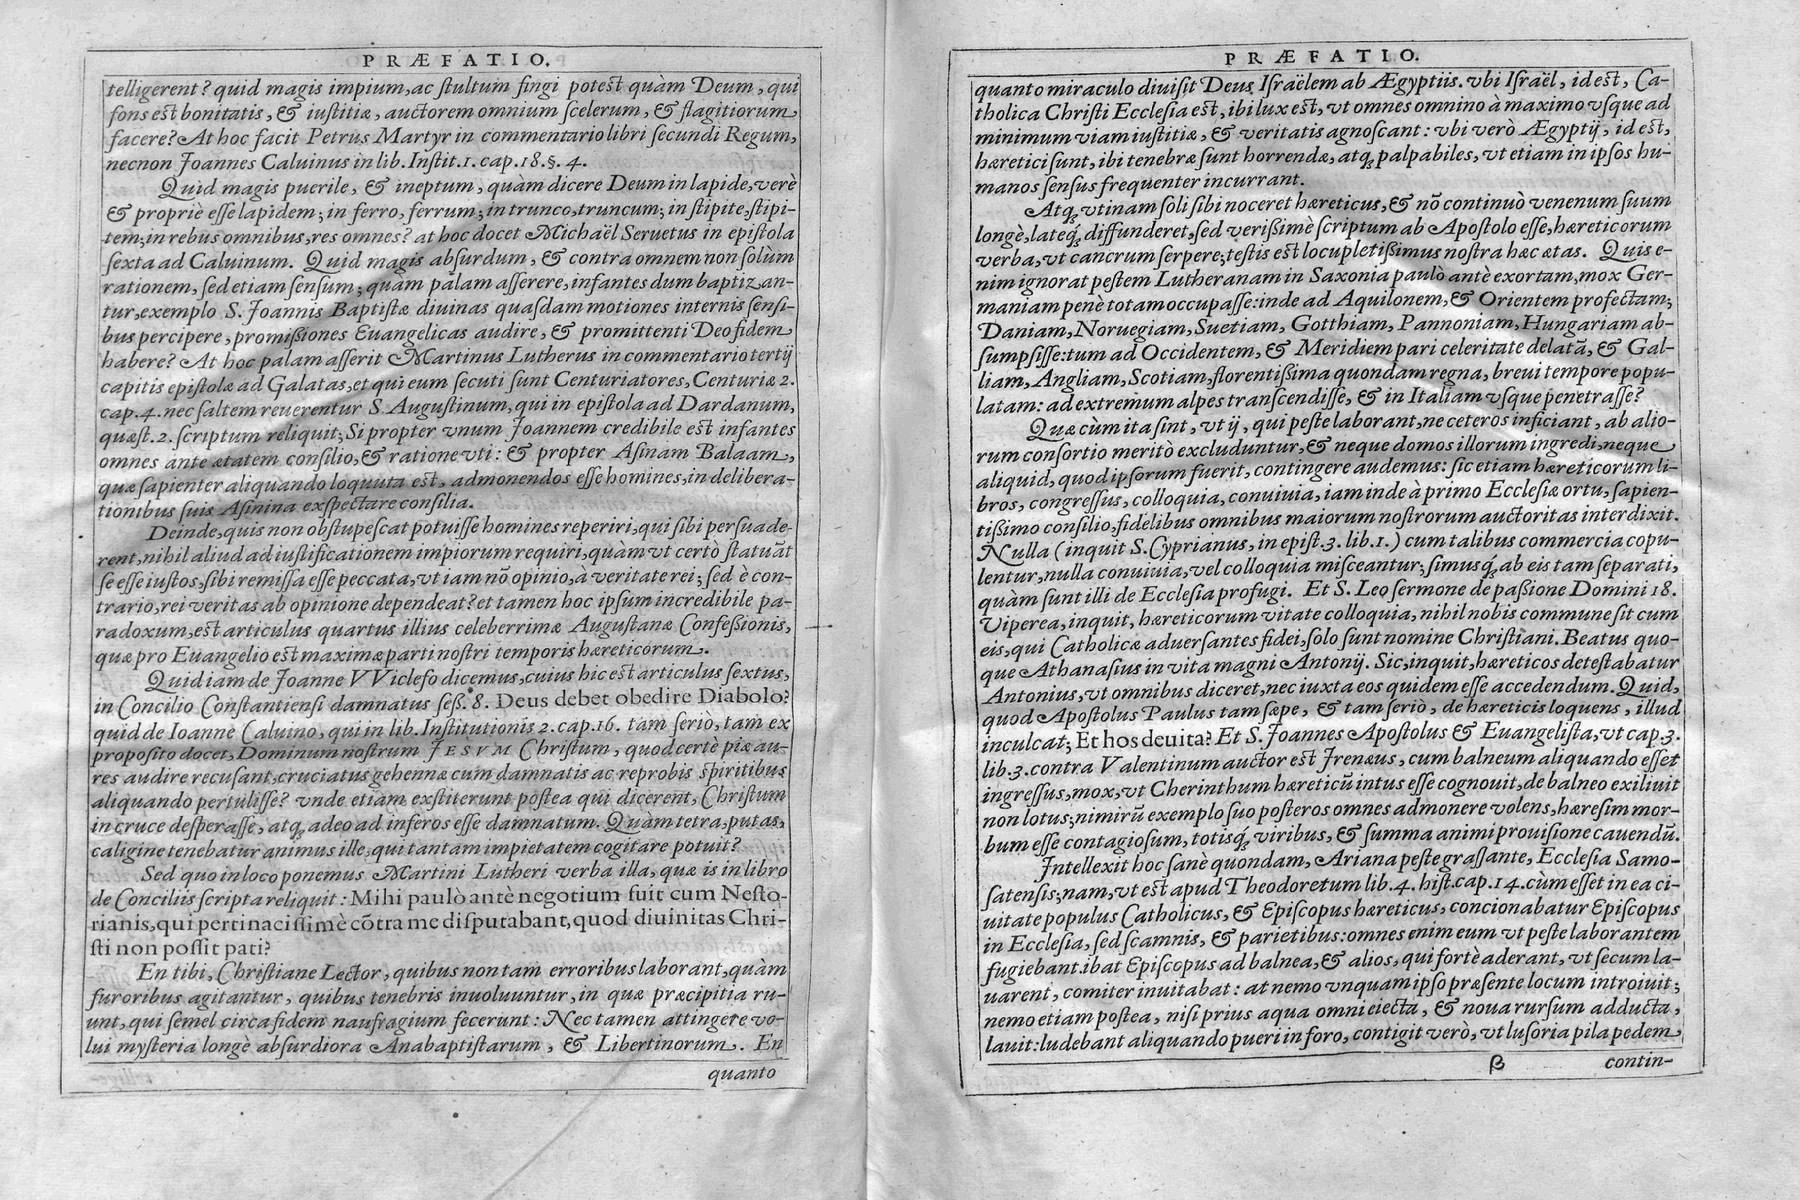 PRÆFATIO.
telligerent? quid magis impium, ac stultum fingi potest quàm Deum, qui
fons est bonitatis, & iustitiæ, auctorem omnium scelerum, & flagitiorum
facere? At hoc facit Petrus Martyr in commentario libri secundi Regum,
necnon Joannes Caluinus in lib. Instit. 1. cap. 18. §. 4.
Quid magis puerile, & ineptum, quàm dicere Deum in lapide, verè
& propriè esse lapidem; in ferro, ferrum; in trunco, truncum; in stipite, stipi-
tem; in rebus omnibus, res omnes? at hoc docet Michaël Seruetus in epistola
sexta ad Caluinum. Quid magis absurdum, & contra omnem non solùm
rationem, sed etiam sensum; quàm palam asserere, infantes dum baptizan-
tur, exemplo S. Joannis Baptistæ diuinas quasdam motiones internis sensi-
bus percipere, promissiones Euangelicas audire, & promittenti Deo fidem
habere? At hoc palam asserit Martinus Lutherus in commentario tertij
capitis epistolæ ad Galatas, et qui eum secuti sunt Centuriatores, Centuriæ 2.
cap. 4. nec saltem reuerentur S. Augustinum, qui in epistola ad Dardanum,
quæst. 2. scriptum reliquit; Si propter vnum Joannem credibile est infantes
omnes ante ætatem consilio, & ratione vti: & propter Asinam Balaam,
quæ sapienter aliquando loquuta est, admonendos esse homines, in delibera-
tionibus suis Asinina exspectare consilia.
Deinde, quis non obstupescat potuisse homines reperiri, qui sibi persuade-
rent, nihil aliud ad iustificationem impiorum requiri, quàm vt certò statuãt
se esse iustos, sibi remissa esse peccata, vt iam nõ opinio, à veritate rei; sed è con-
trario, rei veritas ab opinione dependeat? et tamen hoc ipsum incredibile pa-
radoxum, est articulus quartus illius celeberrimæ Augustanæ Confessionis,
quæ pro Euangelio est maximæ parti nostri temporis hæreticorum.
Quid iam de Joanne VViclefo dicemus, cuius hic est articulus sextus,
in Concilio Constantiensi damnatus sess. 8. Deus debet obedire Diabolo?
quid de Ioanne Caluino, qui in lib. Institutionis 2. cap. 16. tam seriò, tam ex
proposito docet, Dominum nostrum JESVM Christum, quod certè piæ au-
res audire recusant, cruciatus gehennæ cum damnatis ac reprobis spiritibus
aliquando pertulisse? vnde etiam exstiterunt postea qui dicerent, Christum
in cruce desperasse, atq; adeo ad inferos esse damnatum. Quàm tetra, putas,
caligine tenebatur animus ille, qui tantam impietatem cogitare potuit?
Sed quo in loco ponemus Martini Lutheri verba illa, quæ is in libro
de Conciliis scripta reliquit: Mihi paulò antè negotium fuit cum Nesto-
rianis, qui pertinacissimè cõtra me disputabant, quod diuinitas Chri-
sti non possit pati?
En tibi, Christiane Lector, quibus non tam erroribus laborant, quàm
furoribus agitantur, quibus tenebris inuoluuntur, in quæ præcipitia ru-
unt, qui semel circa fidem naufragium fecerunt: Nec tamen attingere vo-
lui mysteria longè absurdiora Anabaptistarum, & Libertinorum. En
quanto
PRÆFATIO.
quanto miraculo diuisit Deus Israëlem ab Ægyptiis. vbi Israël, id est, Ca-
tholica Christi Ecclesia est, ibi lux est, vt omnes omnino à maximo vsque ad
minimum viam iustitiæ, & veritatis agnoscant: vbi verò Ægyptij, id est,
hæretici sunt, ibi tenebræ sunt horrendæ, atq; palpabiles, vt etiam in ipsos hu-
manos sensus frequenter incurrant.
Atq; vtinam soli sibi noceret hæreticus, & nõ continuò venenum suum
longè, lateq; diffunderet, sed verissimè scriptum ab Apostolo esse, hæreticorum
verba, vt cancrum serpere; testis est locupletissimus nostra hæc ætas. Quis e-
nim ignorat pestem Lutheranam in Saxonia paulò antè exortam, mox Ger-
maniam penè totam occupasse: inde ad Aquilonem, & Orientem profectam;
Daniam, Noruegiam, Suetiam, Gotthiam, Pannoniam, Hungariam ab-
sumpsisse: tum ad Occidentem, & Meridiem pari celeritate delatã, & Gal-
liam, Angliam, Scotiam, florentissima quondam regna, breui tempore popu-
latam: ad extremum alpes transcendisse, & in Italiam vsque penetrasse?
Quæ cùm ita sint, vt ij, qui peste laborant, ne ceteros inficiant, ab alio-
rum consortio meritò excluduntur, & neque domos illorum ingredi, neque
aliquid, quod ipsorum fuerit, contingere audemus: sic etiam hæreticorum li-
bros, congressus, colloquia, conuiuia, iam inde à primo Ecclesiæ ortu, sapien-
tissimo consilio, fidelibus omnibus maiorum nostrorum auctoritas interdixit.
Nulla (inquit S. Cyprianus, in epist. 3. lib. 1.) cum talibus commercia copu-
lentur, nulla conuiuia, vel colloquia misceantur; simusq; ab eis tam separati,
quàm sunt illi de Ecclesia profugi. Et S. Leo sermone de passione Domini 18.
Viperea, inquit, hæreticorum vitate colloquia, nihil nobis commune sit cum
eis, qui Catholicæ aduersantes fidei, solo sunt nomine Christiani. Beatus quo-
que Athanasius in vita magni Antonij. Sic, inquit, hæreticos detestabatur
Antonius, vt omnibus diceret, nec iuxta eos quidem esse accedendum. Quid,
quod Apostolus Paulus tam sæpe, & tam seriò, de hæreticis loquens, illud
inculcat; Et hos deuita? Et S. Joannes Apostolus & Euangelista, vt cap. 3.
lib. 3. contra Valentinum auctor est Jrenæus, cum balneum aliquando esset
ingressus, mox, vt Cherinthum hæreticũ intus esse cognouit, de balneo exiliuit
non lotus; nimirũ exemplo suo posteros omnes admonere volens, hæresim mor-
bum esse contagiosum, totisq; viribus, & summa animi prouisione cauendũ.
Jntellexit hoc sanè quondam, Ariana peste grassante, Ecclesia Samo-
satensis; nam, vt est apud Theodoretum lib. 4. hist. cap. 14. cùm esset in ea ci-
uitate populus Catholicus, & Episcopus hæreticus, concionabatur Episcopus
in Ecclesia, sed scamnis, & parietibus: omnes enim eum vt peste laborantem
fugiebant. ibat Episcopus ad balnea, & alios, qui fortè aderant, vt secum la-
uarent, comiter inuitabat: at nemo vnquam ipso præsente locum introiuit;
nemo etiam postea, nisi prius aqua omni eiecta, & noua rursum adducta,
lauit: ludebant aliquando pueri in foro, contigit verò, vt lusoria pila pedem
β contin-